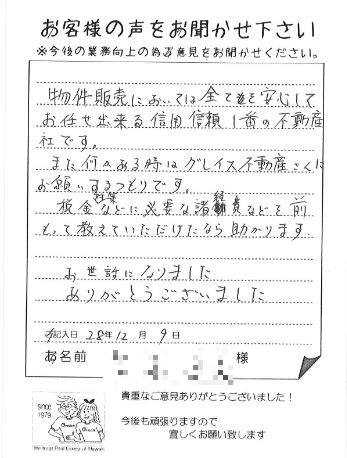 お客様の声をお聞かせ下さい
※今後の業務向上の為ご意見をお聞かせください。
物件販売においては全て安心して
お任せ出来る信用信頼1番の不動産
社です。
また何かある時はグレイス不動産さんに
お願いするつもりです。
税金などに必要な諸経費などを前
もって教えていただけたなら助かります
お世話になりました
ありがとうございました
ご記入日 28年12月9日
お名前 様
貴重なご意見ありがとうございました!
今後も頑張りますので
宜しくお願い致します
SINCE
1979